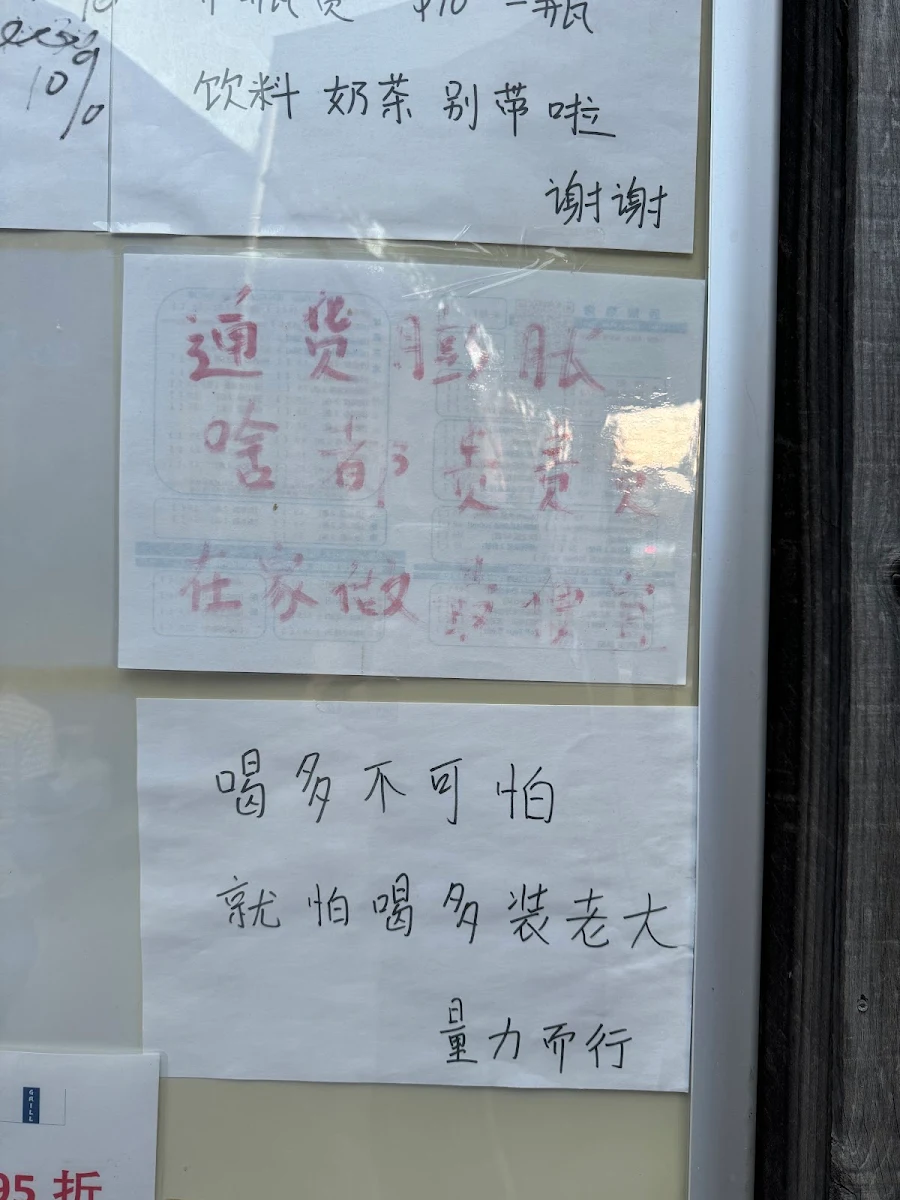 $10 一瓶
10%
饮料 奶茶 别带啦
谢谢
通货膨胀
啥都贵贵贵
在家做最便宜
喝多不可怕
就怕喝多装老大
量力而行
GRILL
95 折